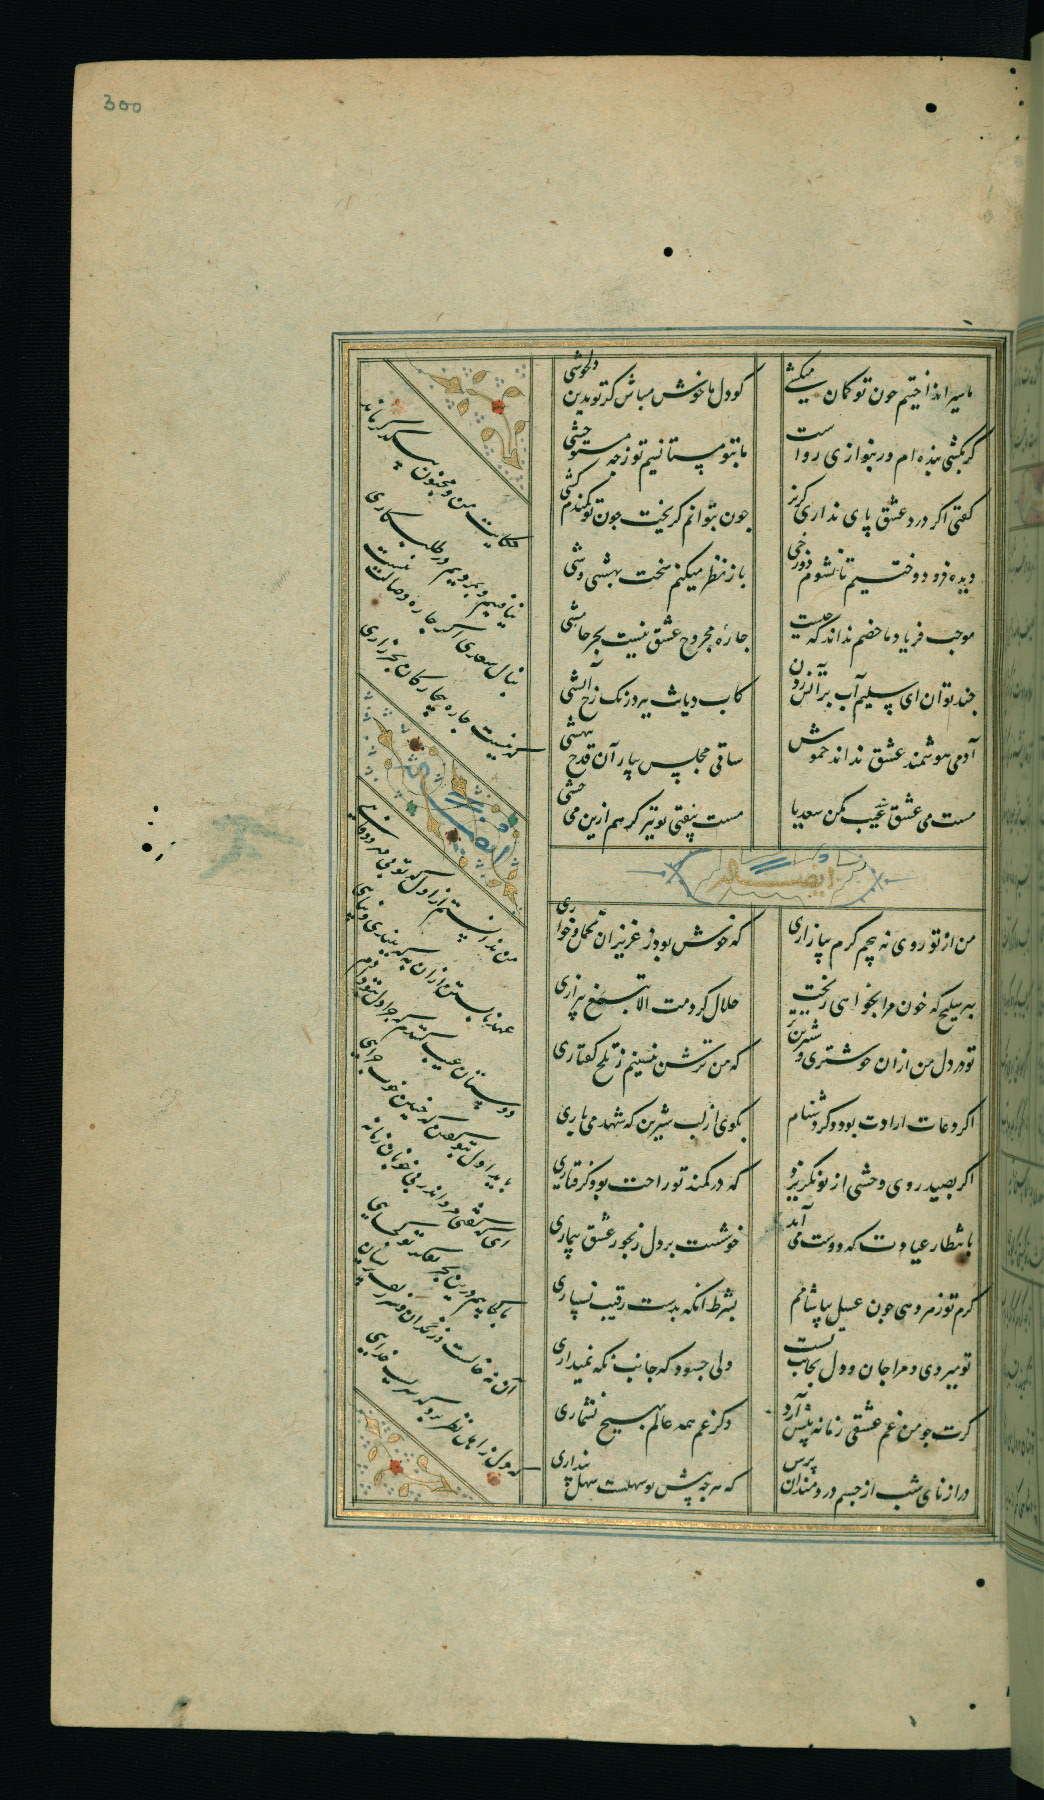 300
ما سپر انداختیم چون تو کمان میکشی
کو دل ما خوش مباش کر تو بدین دلخوشی
کر بکشی بنده ام ور بنوازی رواست
ما بتو مستانسیم تو ز چه مستوحشی
کفتی اکر درد عشق پای نداری کریز
چون بتوانم کریخت چون تو کمندم کشی
دیده فرو دوختیم تا نشوم دوزخی
باز نظر میکنم سخت بهشتی وشی
موجب فریاد ما خصم نداند که چیست
چارهٔ مجروح عشق نیست بجز خامشی
چند توان ای سلیم آب بر آتش زدن
کاب دیانت ببرد رنک رخ آتشی
آدمی هوشمند عشق نداند خموش
ساقی مجلس بیار آن قدح بیهشی
مست می عشق عیب مکن سعدیا
مست بیفتی تو نیز کر هم ازین می چشی
ایضا له
من از تو روی نه پیچم کرم بیازاری
که خوش بود ز عزیزان تحمل و خواری
بهر سلیح که خون مرا بخواهی ریخت
حلال کردمت الا بتیغ بیزاری
تو در دل من از آن خوشتری و شیرین تر
که من ترش بنشینم ز تلخ کفتاری
اکر دعات ارادت بود و کر دشنام
بکوی از لب شیرین که شهد می باری
اکر بصید روی وحشی از تو نکریزد
که در کمند تو راحت بود کرفتاری
بانتظار عیادت که دوست می آید
خوشست بر دل رنجور عشق بیماری
کرم تو زهر دهی چون عسل بیاشامم
بشرط انکه بدست رقیب نسپاری
تو میروی و مرا جان و دل بجانب تست
ولی چه سود که جانب نکه نمیداری
کرت چو من غم عشقی زمانه پیش آرد
دکر غم همه عالم بهیچ نشماری
درازنای شب از چشم دردمندان پرس
که هر چه پیش تو سهلست سهل پنداری
حکایت من و مجنون بیکدکر ماند
نیافتیم و بمردیم در طلب کاری
بنال سعدی اکر چارهٔ وصالت نیست
که نیست چاره بیچارکان بجز زاری
ایضا له
من ندانستم از اول که تو بی مهر و وفایی
عهد نابستن از آن به که ببندی و نپایی
دوستان عیب کنندم که چرا دل بتو دادم
باید اول بتو کفتن که چنین خوب چرایی
ای که کفتی مرو اندر پی خوبان زمانه
ما کجاییم درین بحر تفکر تو کجایی
آن نه خالست و زنخدان و سر زلف پریشان
که دل اهل نظر برد که سریست خدایی